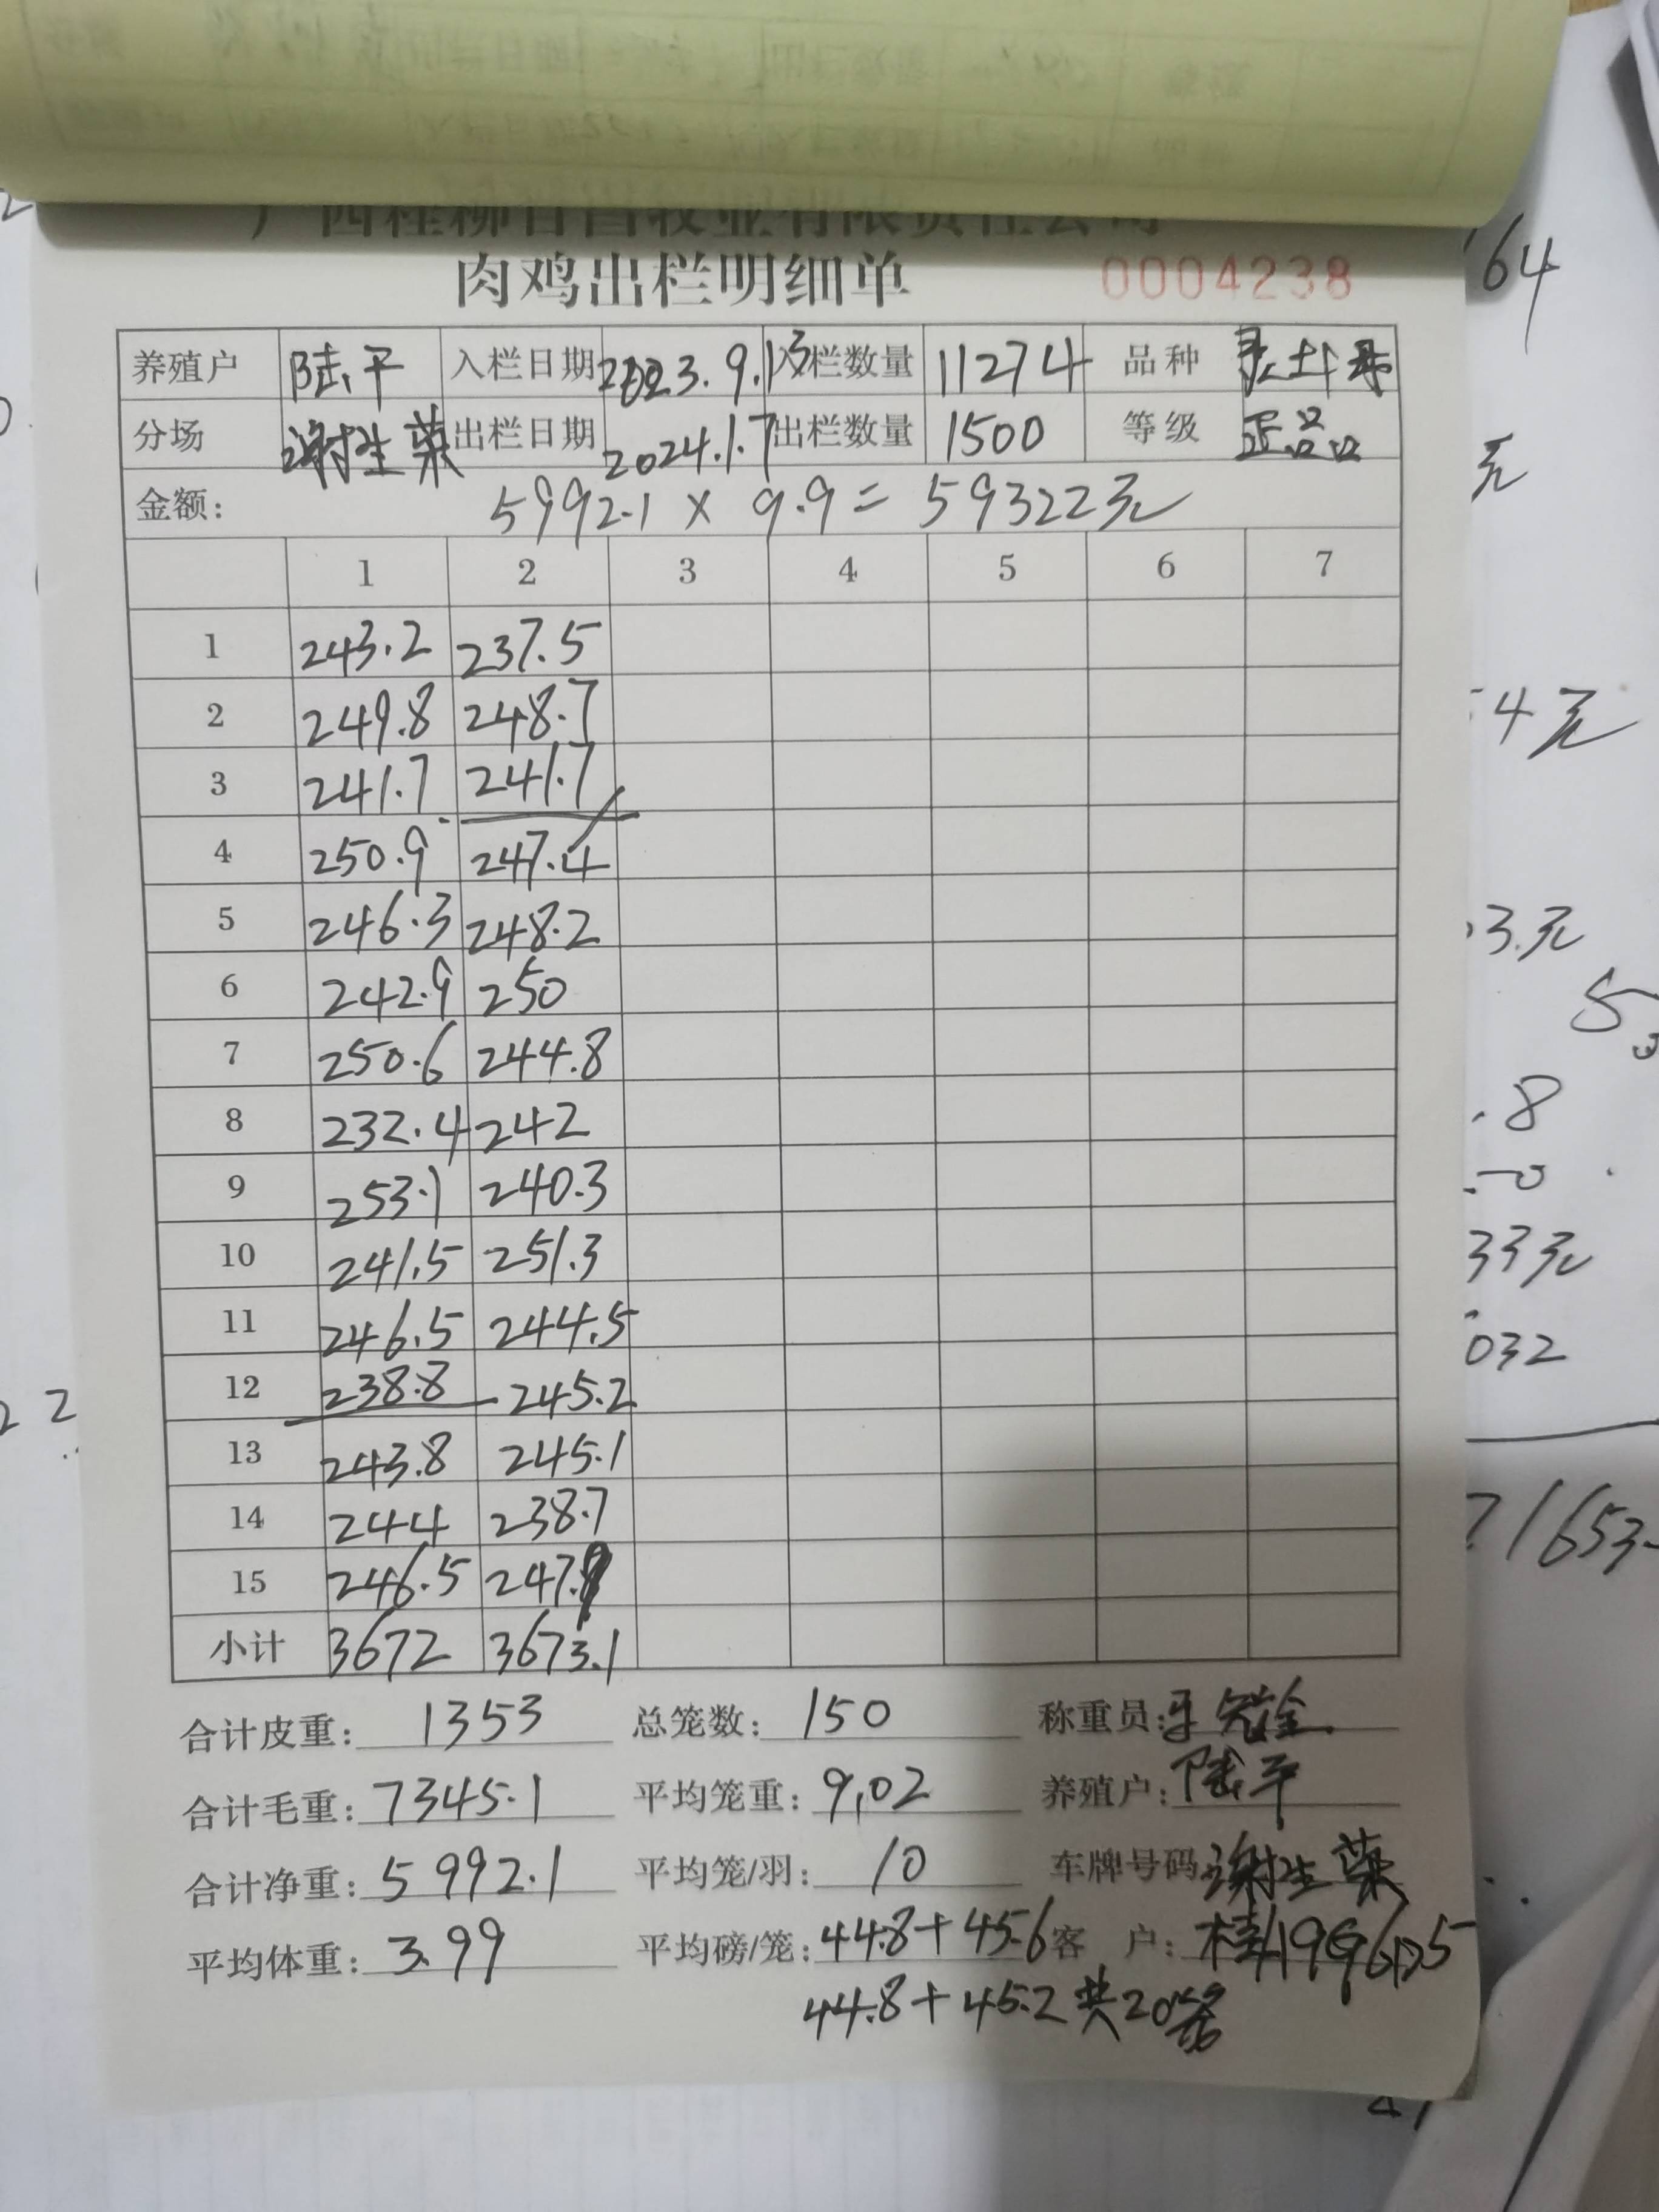 广西桂柳百昌牧业有限责任公司
肉鸡出栏明细单 0004238
养殖户 陆平 入栏日期 2023.9.13 入栏数量 11274 品种
分场 谢生荣 出栏日期 2024.1.7 出栏数量 1500 等级 正品
金额: 5992.1 × 9.9 = 59322元
1 2 3 4 5 6 7
1 243.2 237.5
2 249.8 248.7
3 241.7 241.7
4 250.9 247.4
5 246.3 248.2
6 242.9 250
7 250.6 244.8
8 232.4 242
9 253.1 240.3
10 241.5 251.3
11 246.5 244.5
12 238.8 245.2
13 243.8 245.1
14 244 238.7
15 246.5 247.
小计 3672 3673.1
合计皮重: 1353 总笼数: 150 称重员:
合计毛重: 7345.1 平均笼重: 9.02 养殖户: 陆平
合计净重: 5992.1 平均笼/羽: 10 车牌号码 谢生荣
平均体重: 3.99 平均磅/笼: 44.8+45.6 客 户:
44.8+45.2 共20笼
164
元
4元
3.元
5
.8
33元
032
71653
22